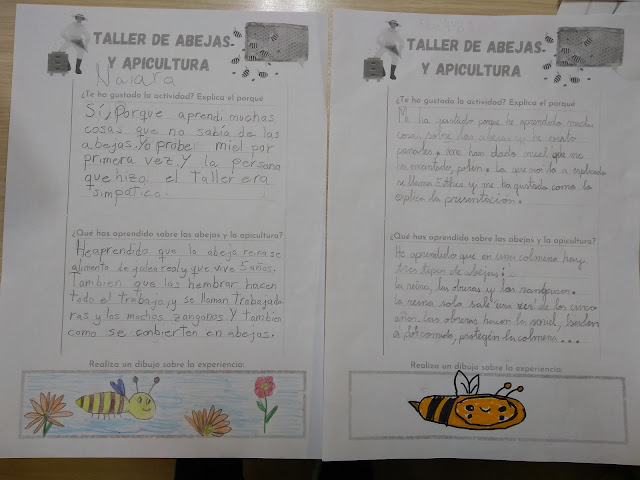 TALLER DE ABEJAS
Y APICULTURA
Naiara
¿Te ha gustado la actividad? Explica el porqué
Sí, Porque aprendí muchas
cosas que no sabía de las
abejas. Yo probé miel por
primera vez. Y la persona
que hizo el taller era
simpática.
¿Qué has aprendido sobre las abejas y la apicultura?
He aprendido que la abeja reina se
alimenta de jalea real y que vive 5 años.
Tambien que las hembrar hacen
todo el trabajo, y se llaman trabajado
ras y los machos zanganos. Y tambien
como se conbierten en abejas.
Realiza un dibujo sobre la experiencia:
TALLER DE ABEJAS
Y APICULTURA
¿Te ha gustado la actividad? Explica el porqué
Me ha gustado porque he aprendido muchas
cosas sobre las abejas y he visto
panales. Me han dado miel que me
ha encantado, polen. La que nos lo a explicado
se llama Esther y me ha gustado como lo
explica la presentacion.
¿Qué has aprendido sobre las abejas y la apicultura?
He aprendido que en una colmena hay
tres tipos de abejas:
la reina, las obreras y los zanganos.
La reina solo sale una vez de los cinco
años. Las obreras hacen la miel,
a protegen la colmena...
Realiza un dibujo sobre la experiencia: